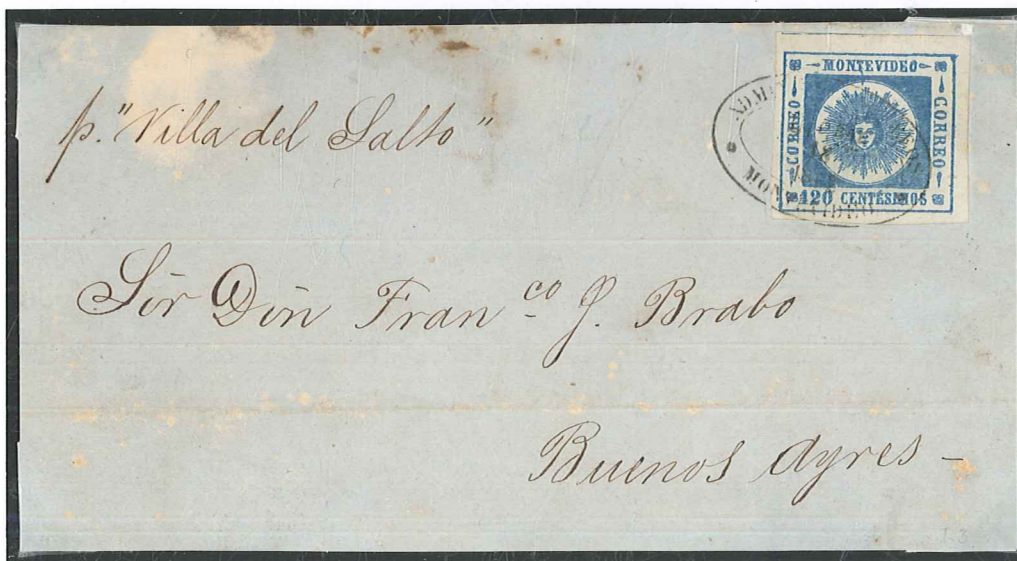 p. "Villa del Salto"
MONTEVIDEO
CORREO
CORREO
120 CENTÉSIMOS
MONTEVIDEO
Sōr Dōn Fran.co J. Brabo
Buenos Ayres -